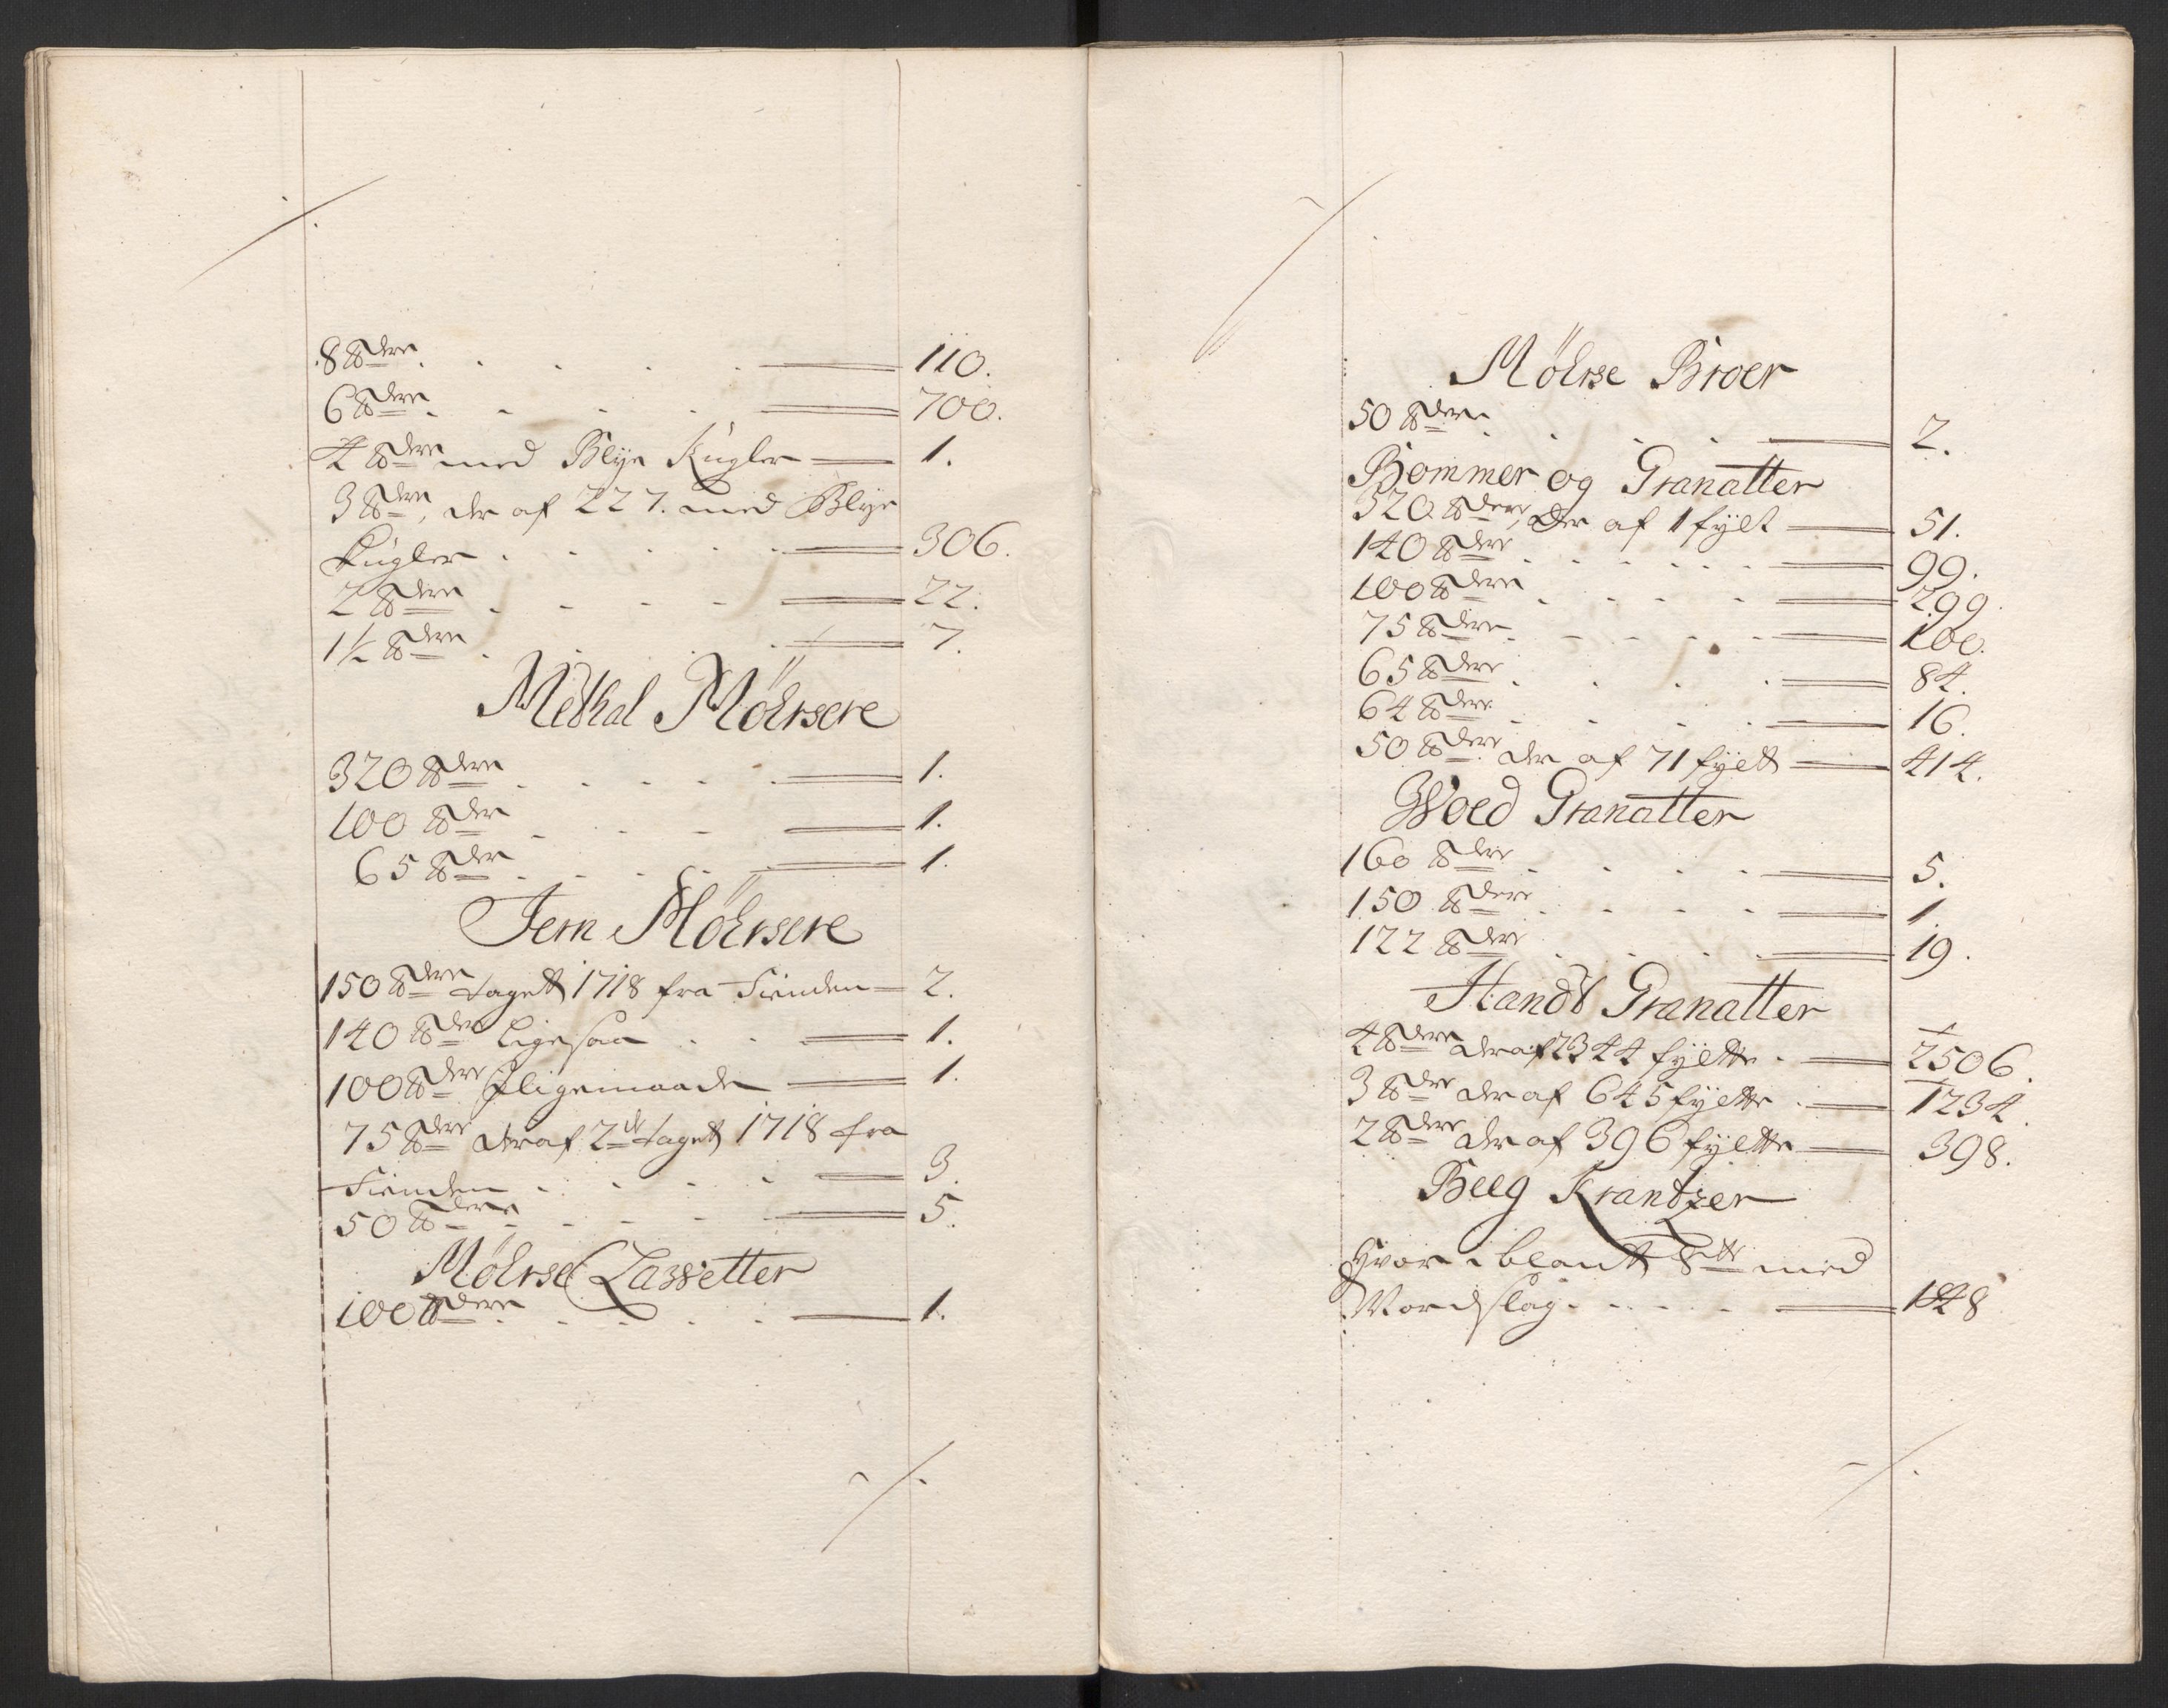 8 ℔dere 110.
6 ℔dere 700.
4 ℔dere med Blye Kugler 1.
3 ℔dere, der af 227. med Blye
Kugler 306.
2 ℔dere 22.
1½ ℔dere 7.
Methal Möhrsere
320 ℔dere 1.
100 ℔dere 1.
65 ℔dere 1.
Jern Möhrsere
150 ℔dere tagett 1718 fra Fienden 2.
140 ℔dere ligesaa 1.
100 ℔dere Jligemaade 1.
75 ℔dere deraf 2de taget 1718 fra
Fienden 3.
50 ℔dere 5.
Möhrse Lassetter
100 ℔dere 1.
Möhrse Broer
50 ℔dere 2.
Bommer og Granatter
320 ℔dere, der af 1 fyldt 51.
140 ℔dere 99.
100 ℔dere 299.
75 ℔dere 100.
65 ℔dere 84.
64 ℔dere 16.
50 ℔dere der af 71 fyldt 414.
Woed Granatter
160 ℔dere 5.
150 ℔dere 1.
122 ℔dere 19.
Handt Granatter
4 ℔dere deraf 2344 fyldte 2506.
3 ℔dere der af 645 fyldte 1234.
2 ℔dere der af 396 fyldte 398.
Beeg Krantzer
Hvor i blandt 8tte med
Mordslag 148